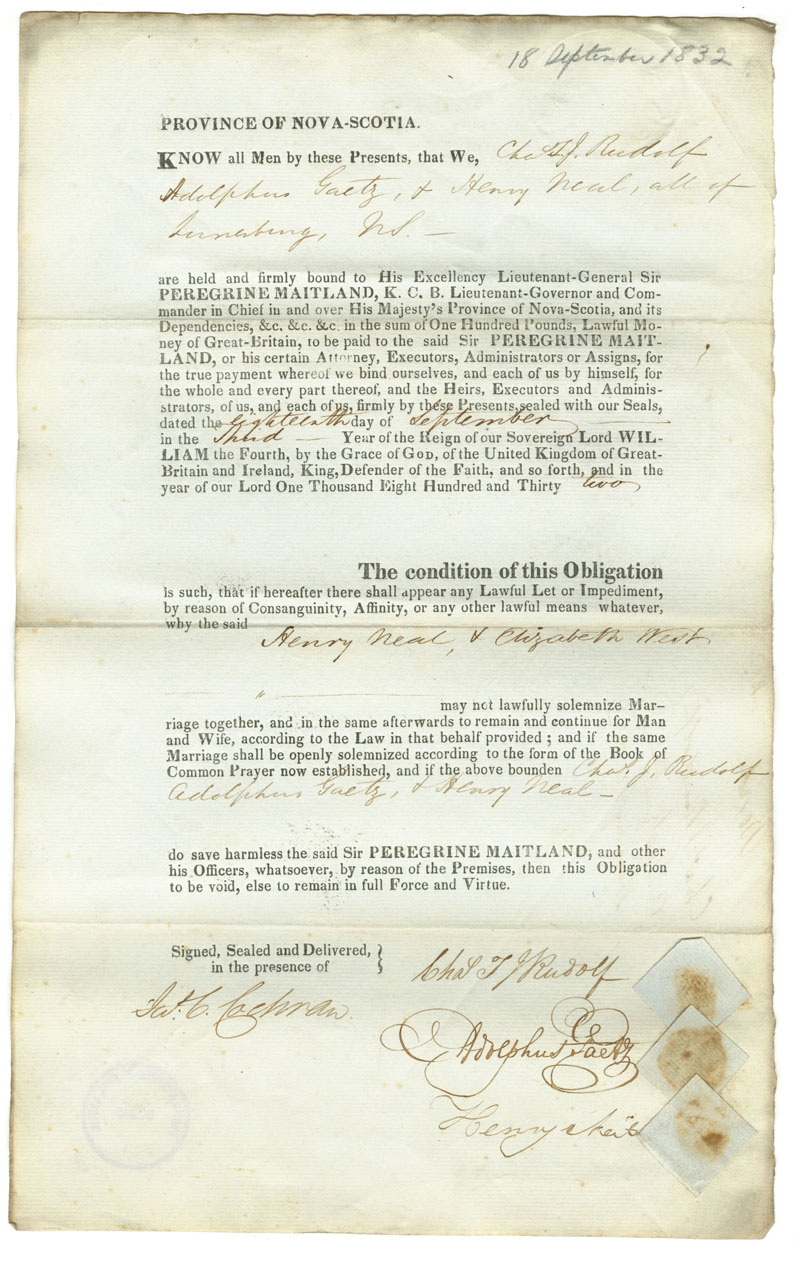 18 September 1832
PROVINCE OF NOVA-SCOTIA.
KNOW all Men by these Presents, that We, Chas. T. J. Rudolf
Adolphus Gaetz, & Henry Neal, all of
Lunenburg, NS. —
are held and firmly bound to His Excellency Lieutenant-General Sir
PEREGRINE MAITLAND, K. C. B. Lieutenant-Governor and Com-
mander in Chief in and over His Majesty's Province of Nova-Scotia, and its
Dependencies, &c. &c. &c. in the sum of One Hundred Pounds, Lawful Mo-
ney of Great-Britain, to be paid to the said Sir PEREGRINE MAIT-
LAND, or his certain Attorney, Executors, Administrators or Assigns, for
the true payment whereof we bind ourselves, and each of us by himself, for
the whole and every part thereof, and the Heirs, Executors and Adminis-
strators, of us, and each of us, firmly by these Presents, sealed with our Seals,
dated the eighteenth day of September
in the Third — Year of the Reign of our Sovereign Lord WIL-
LIAM the Fourth, by the Grace of GOD, of the United Kingdom of Great-
Britain and Ireland, King, Defender of the Faith, and so forth, and in the
year of our Lord One Thousand Eight Hundred and Thirty two,
The condition of this Obligation
is such, that if hereafter there shall appear any Lawful Let or Impediment,
by reason of Consanguinity, Affinity, or any other lawful means whatever,
why the said Henry Neal, & Elizabeth West
may not lawfully solemnize Mar-
riage together, and in the same afterwards to remain and continue for Man
and Wife, according to the Law in that behalf provided; and if the same
Marriage shall be openly solemnized according to the form of the Book of
Common Prayer now established, and if the above bounden Chas. J. Rudolf
Adolphus Gaetz, & Henry Neal —
do save harmless the said Sir PEREGRINE MAITLAND, and other
his Officers, whatsoever, by reason of the Premises, then this Obligation
to be void, else to remain in full Force and Virtue.
Signed, Sealed and Delivered,
in the presence of
Chas T J Rudolf
Jas. C. Cochran.
Adolphus Gaetz
Henry Neil